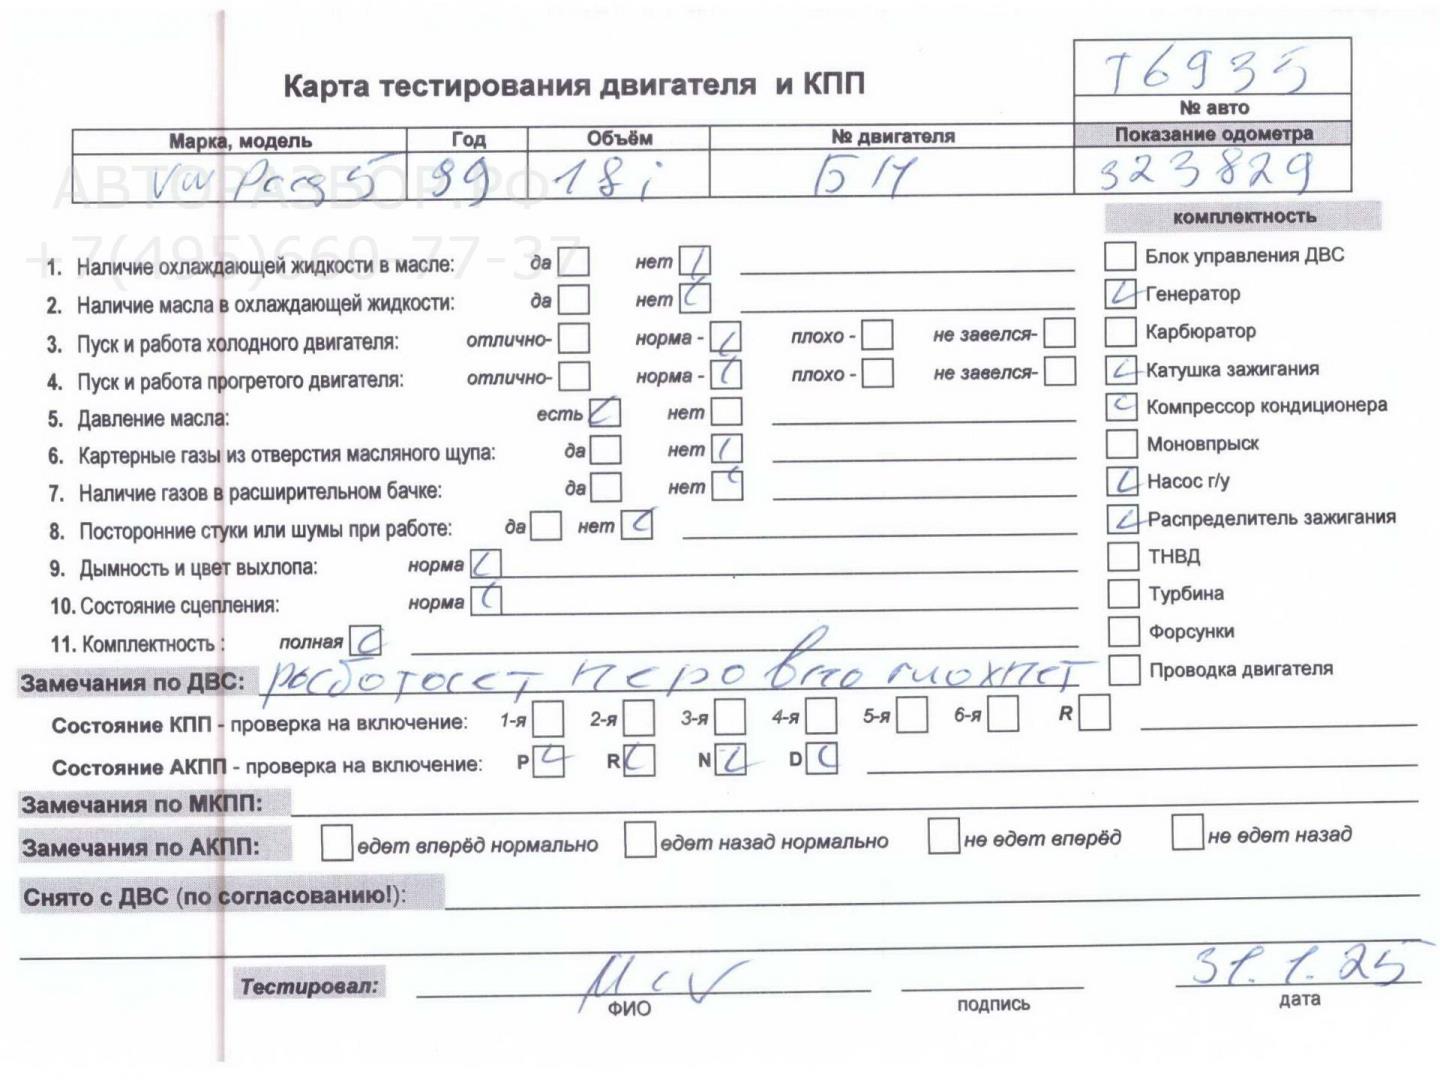 Т6935
Карта тестирования двигателя и КПП
№ авто
Марка, модель Год Объём № двигателя Показание одометра
VW Passat 5 99 1.8i Б/Н 323829
АВТОРАЗБОР.РФ
+7(495)660-77-37
комплектность
1. Наличие охлаждающей жидкости в масле: да нет
Блок управления ДВС
2. Наличие масла в охлаждающей жидкости: да нет
Генератор
3. Пуск и работа холодного двигателя: отлично- норма - плохо - не завелся-
Карбюратор
4. Пуск и работа прогретого двигателя: отлично- норма - плохо - не завелся-
Катушка зажигания
5. Давление масла: есть нет
Компрессор кондиционера
6. Картерные газы из отверстия масляного щупа: да нет
Моновпрыск
7. Наличие газов в расширительном бачке: да нет
Насос г/у
8. Посторонние стуки или шумы при работе: да нет
Распределитель зажигания
9. Дымность и цвет выхлопа: норма
ТНВД
10. Состояние сцепления: норма
Турбина
11. Комплектность : полная
Форсунки
Замечания по ДВС: работает неровно глохнет
Проводка двигателя
Состояние КПП - проверка на включение: 1-я 2-я 3-я 4-я 5-я 6-я R
Состояние АКПП - проверка на включение: P R N D
Замечания по МКПП:
Замечания по АКПП: едет вперёд нормально едет назад нормально не едет вперёд не едет назад
Снято с ДВС (по согласованию!):
Тестировал: 31.1.25
ФИО подпись дата